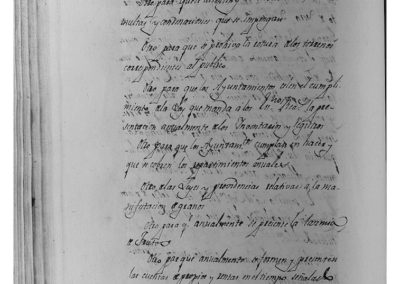 Otro para que
multas y condenaciones que se impongan
Otro para que se prohiva la rotura a los terrenos
correspondientes al publico
Otro para que los Ayuntamientos den el cumpli-
miento a la Ley que manda a los la pre-
sentacion anualmente a los Inventarios y registros
Otro para que los Ayuntamtos cumplan en hacer y
que se cobren los repartimientos anuales
Otro, a las Leyes y providencias relativas a la ma-
nifestacion a granos
Otro para q anualmente se presente la tazmia
a frutos
Otro para que anualmente se formen y presenten
las cuentas a propios y rentas en el tiempo señalado